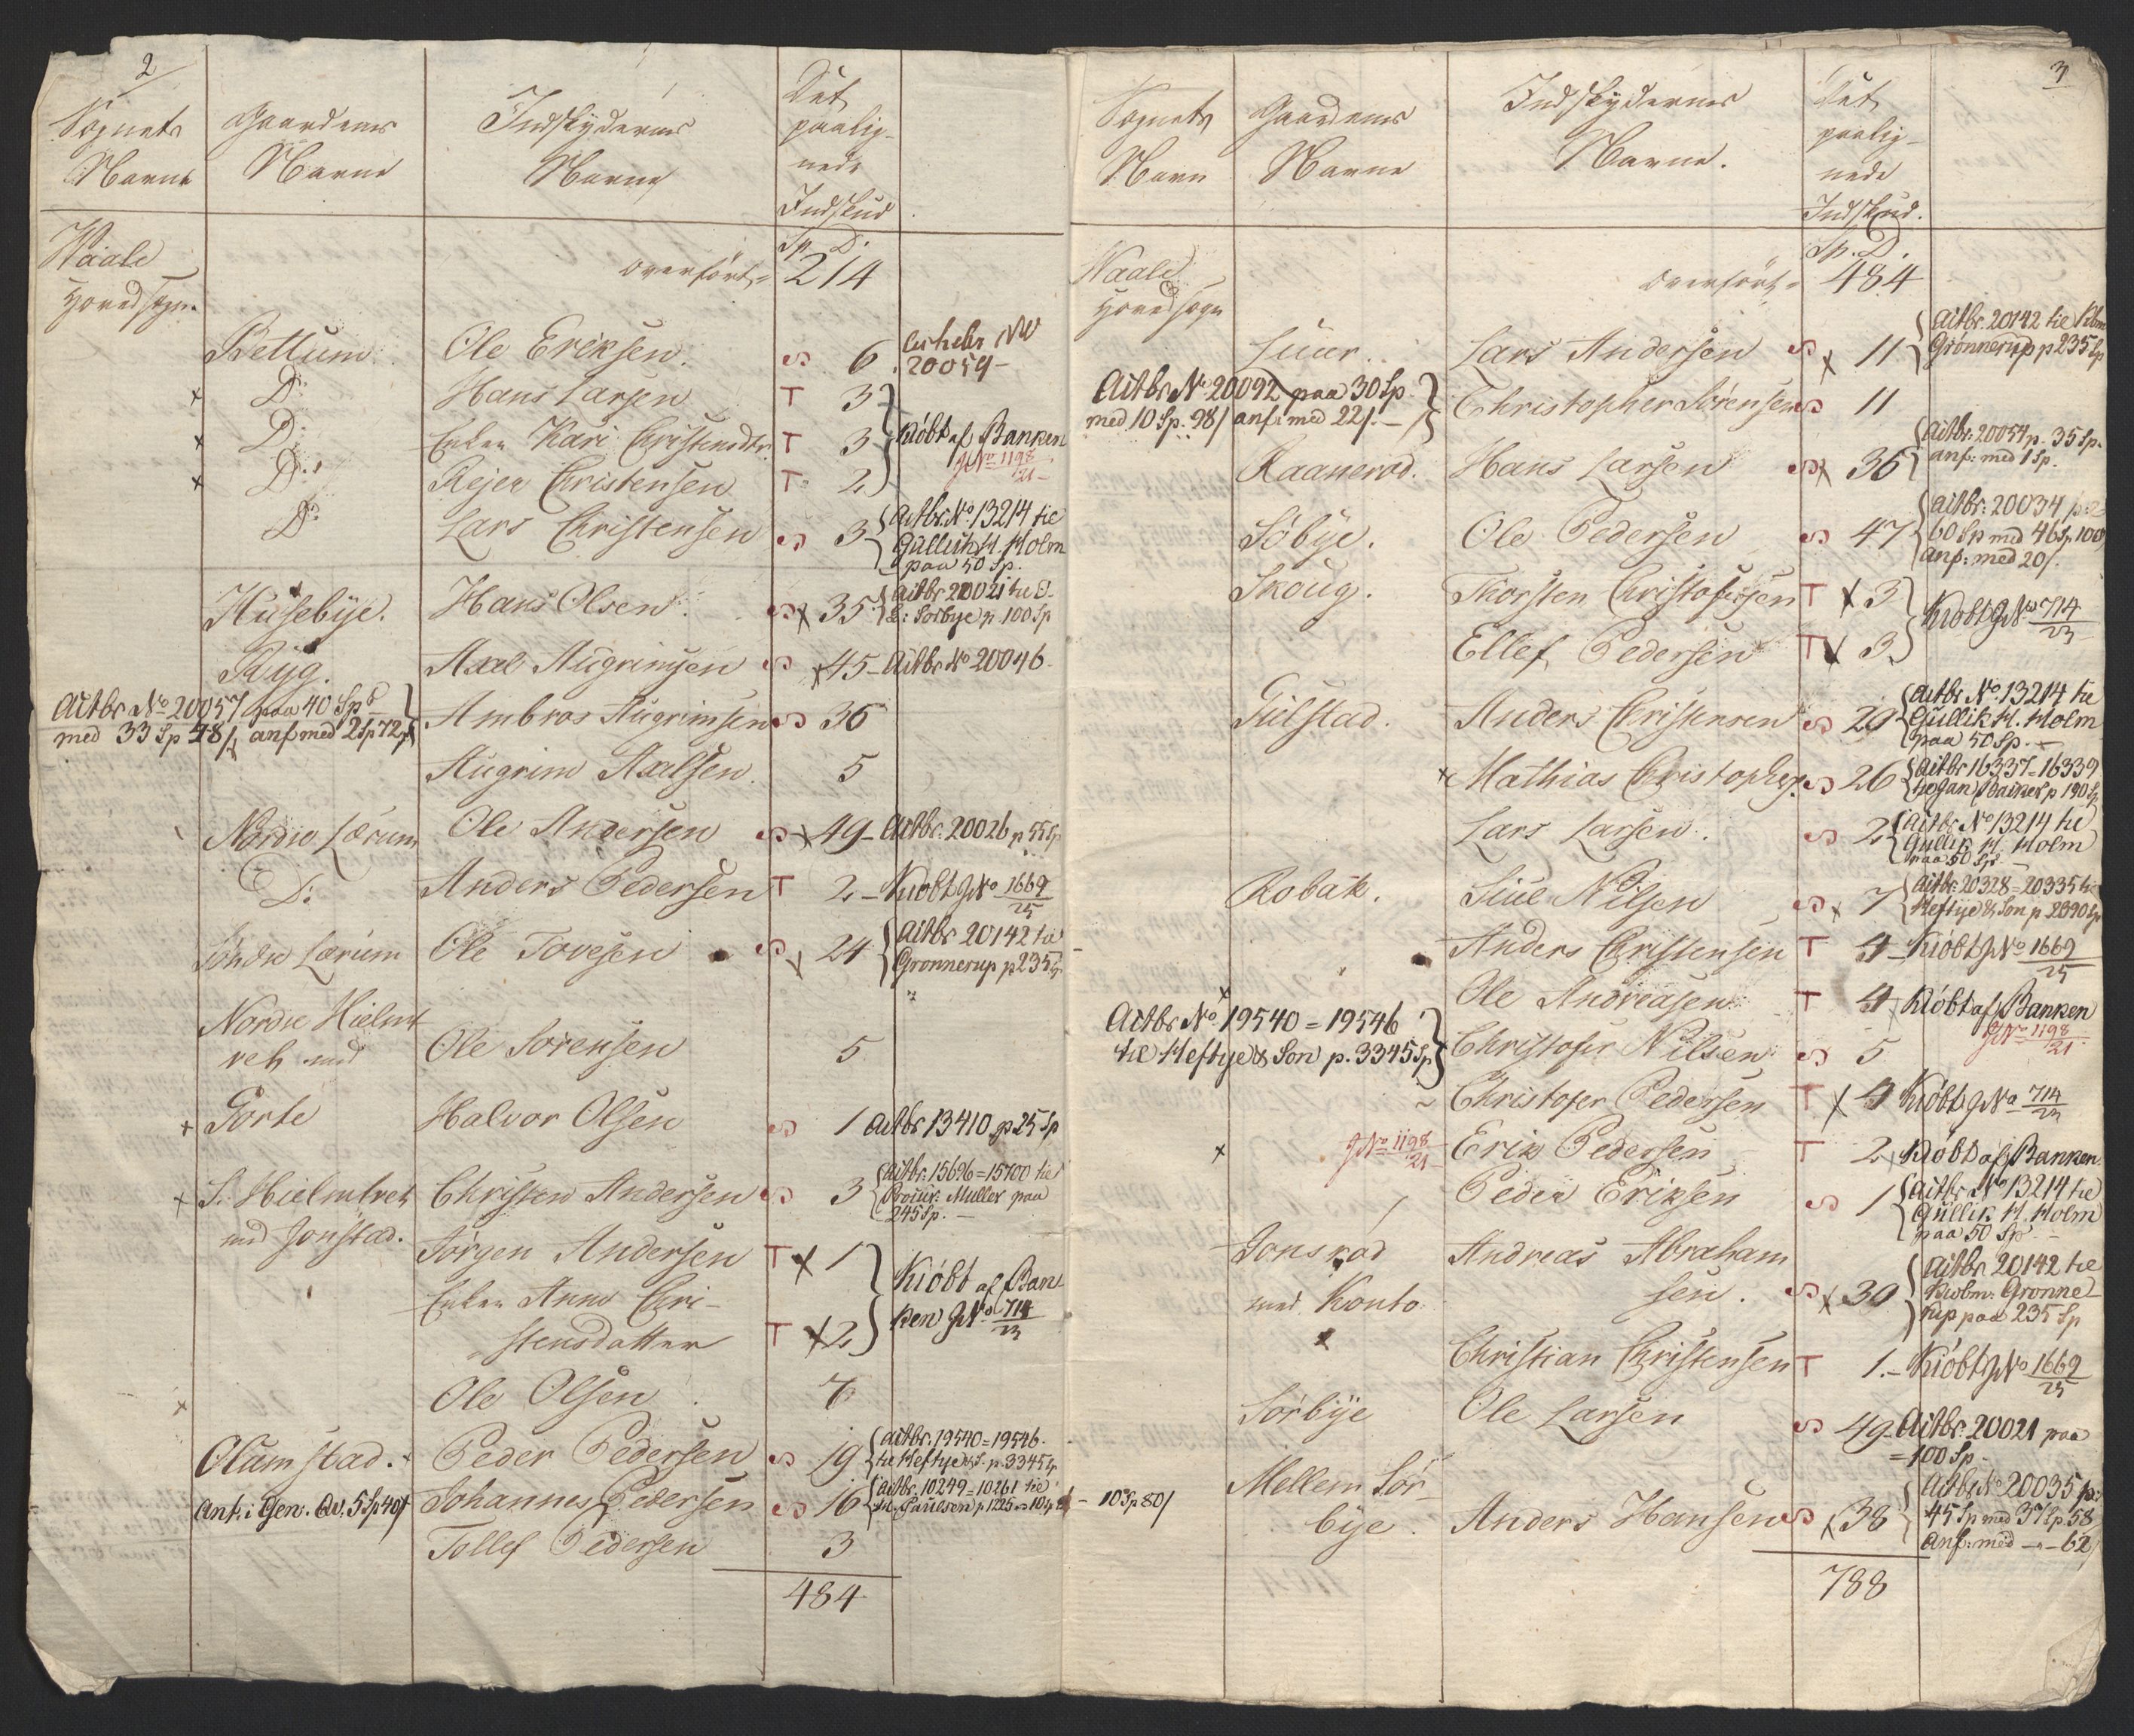 2
Sognets Navne
Gaardenes Navne
Indskydernes Navne
Det paalig-
nede
Indskud
Waale
Hovedsogn.
Sp. D.
overført = 214
Bettum Ole Eriksen S 6 20059-
x D: Hans Larsen T 3
x D: Enken Kari Christensdtr T 3 Kiöbt af Banken
JNo 1198/21
x D: Rejer Christensen T 2
D: Lars Christensen S 3 Actbr. No. 13214 til
Gullich H. Holm
paa 50 Sp.
Husebÿe. Hans Olsen S x 35 Actbr 20021 til O.
L: Sörbye p. 100 Sp
Rÿg. Axel Augrimsen S x 45 - Actbr No 20046.
Actbr No 20057 paa 40 Spd
med 33 Sp 48/ anf med 2 Sp 72/
Ambros Augrimsen S 36
Augrim Axelsen 5
Nordre Lærum Ole Andersen S x 49 - Actbr. 20026 p 55 Sp
D: Anders Pedersen T 2 - Kiöbt JNo 1669/25
Söndre Lærum Ole Tovesen S x 24 Actbr 20142 til
Grønnerup p 235 Sp
Nordre Hielmt
veh med Ole Sörensen 5
x Gorte Halvor Olsen S 1 Actbr 13410 p 25 Sp
x S. Hielmtveh Christen Andersen S 3 Actbr. 15696 = 15700 til
Procur: Muller paa
245 Sp. -
med Jonstad. Jörgen Andersen T x 1
Enken Anne Chri-
stensdatter T x 2
Kiöbt af Ban-
ken JNo 714/23
x Ole Olsen 7
Olumstad. x Peder Pedersen S 19 Actbr. 19540 = 19546.
til Heftye & S. p. 3345 Sp
Ant. i Gen: Qv: 5 Sp 40/ Johannes Pedersen S 16 Actbr. 10249 = 10261 til
Paulsen p 1225 - 10 Sp 80/
Tollef Pedersen 3
484
3
Sognets
Navn
Gaardenes
Navne
Indskydernes
Navne.
Det
paalig-
nede
Indskud.
Waale
Hovedsogn
Sp. D.
overført = 484
Suur. Lars Andersen S x 11 Actbr. 20142 til Kbm
Grønnerup p 235 Sp
Actbr No 20092 paa 30 Sp.
med 10 Sp. 98/ anf: med 22/. -
Christopher Sörensen S 11
Raanerod. Hans Larsen S x 36 Actbr: 20054 p. 35 Sp.
anf: med 1 Sp.
Söbye. Ole Pedersen S 47 Actbr: 20034 p:
60 Sp med 46 Sp 100/
anf: med 20/.
Skoug. Thorsten Christofersen T x 3
Ellef Pedersen T x 3
Kiöbt JNo 714/23
Gulstad. Anders Christensen S 29 Actbr No. 13214 til
Gullik H. Holm
paa 50 Sp. -
x Mathias Christophers. S 26 Actbr 16337 = 16339
p 190 Sp
Lars Larsen. S 2 Actbr No 13214 til
Gullik H. Holm
paa 50 Sp. -
Robak. Siul Nilsen S x 7 Actbr: 20328 = 20335 til
Heftye & Son p 2390 Sp
Anders Christensen T 4 - Kiöbt JNo 1669/25
x Ole Andreasen T 4 Kiöbt af Banken
JNo 1198/21
Actbr No 19540 = 19546
til Heftye & Son p. 3345 Sp
Christofer Nilsen S 5
Christofer Pedersen T x 4 Kiöbt JNo 714/23
x JNo 1198/21 Erik Pedersen T 2 Kiöbt af Banken
Peder Eriksen S 1 Actbr No 13214 til
Gullik H. Holm
paa 50 Sp. -
Jonsrod Andreas Abraham
med Konto sen. S x 30 Actbr 20142 til
Kiobm: Grønne-
rup paa 235 Sp
x Christian Christensen T 1. - Kiöbt JNo 1669/25
Sörbÿe Ole Larsen S 49 - Actbr: 20021 paa
= 100 Sp
- 10 Sp 80/
Mellem Sör-
bye. Anders Hansen S x 38 Actbr No 20035 p:
45 Sp med 37 Sp 58
anf: med - " - 62/
788